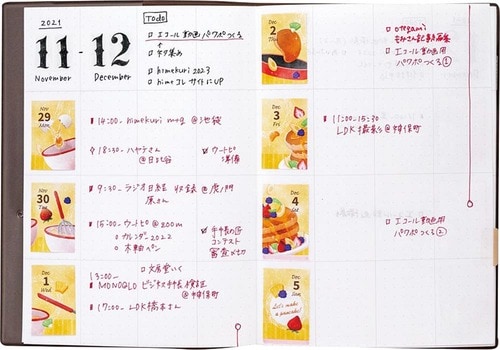 2021
11-12
November
December
Todo
□ エコール動画パワポつくる
□ ネタ集め
□ himekuri 2023
□ himeコレ サイトにUP
Nov
29
Mon
14:00- himekuri mtg @池袋
18:30- ハヤテさん
@日比谷
ウートピ
準備
Nov
30
Tue
9:30- ラジオ日経 収録 @虎ノ門
原さん
15:00- ウートピ @zoom
○ カレンダー2022
○ 木軸ペン
手帳の
コンテスト
審査〆切
Dec
1
Wed
□ 文房堂いく
13:00-
MONOQLO ビジネス手帳 検証
@神保町
17:00- LDK橋本さん
Dec
2
Thu
□ otegami
□ エコール動画用
パワポつくる①
Dec
3
Fri
11:00-15:30
LDK撮影@神保町
Dec
4
Sat
□ エコール動画用
パワポつくる②
Dec
5
Sun
Let's make
a pancake!